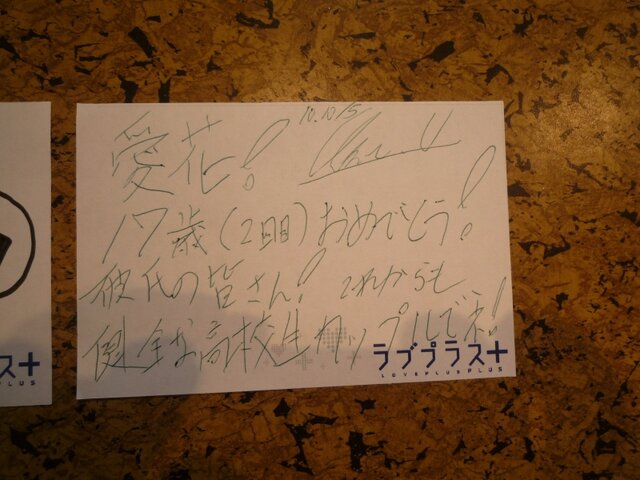 10.10/5
愛花!
17歳(2回目)おめでとう!
彼氏の皆さん! これからも
健全な高校生カップルでネ!
ラブプラス+
LOVEPLUSPLUS
ラス+
PLUS